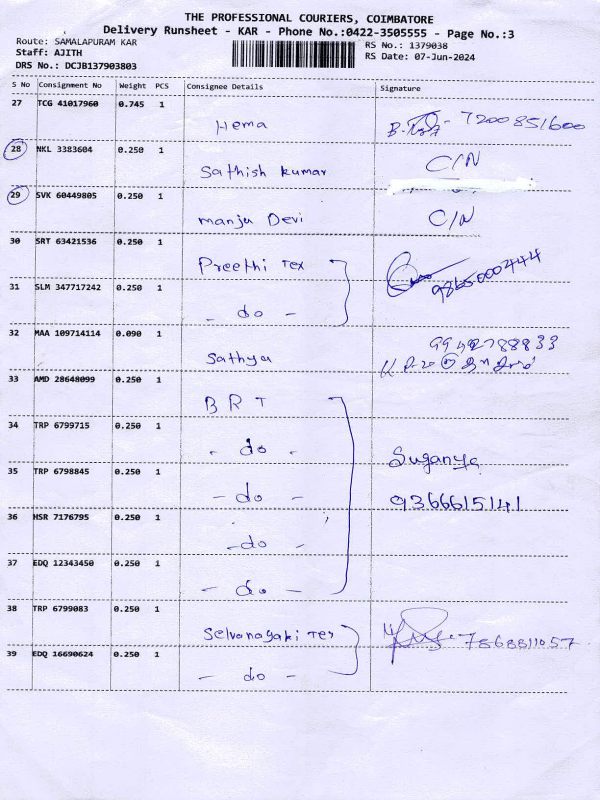 THE PROFESSIONAL COURIERS, COIMBATORE
Delivery Runsheet - KAR - Phone No.:0422-3505555 - Page No.:3
Route: SAMALAPURAM KAR
RS No.: 1379038
Staff: AJITH
RS Date: 07-Jun-2024
DRS No.: DCJB137903803
S No Consignment No Weight PCS Consignee Details Signature
27 TCG 41017960 0.745 1
Hema 7200851600
28 NKL 3383604 0.250 1
Sathish kumar C/N
29 SVK 60449805 0.250 1
manju Devi C/N
30 SRT 63421536 0.250 1
Preethi Tex 9865000444
31 SLM 347717242 0.250 1
- do -
32 MAA 109714114 0.090 1
Sathya 9942788833
33 AMD 28648099 0.250 1
B R T
34 TRP 6799715 0.250 1
- do -
Suganya
35 TRP 6798845 0.250 1
- do -
9366615141
36 HSR 7176795 0.250 1
- do -
37 EDQ 12343450 0.250 1
- do -
38 TRP 6799083 0.250 1
Selvanayaki Tex 7868811057
39 EDQ 16690624 0.250 1
- do -